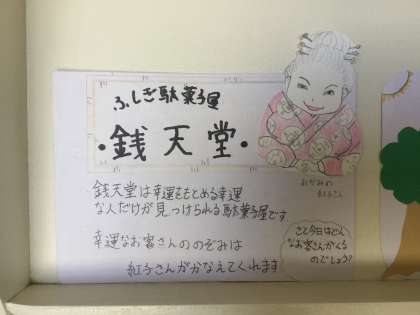 ふしぎ駄菓子屋
・銭天堂・
おかみの
紅子さん
銭天堂は幸運をもとめる幸運
な人だけが見つけられる駄菓子屋です
幸運なお客さんののぞみは
紅子さんがかなえてくれます
さて今日はどん
なお客さんがくる
のでしょう?